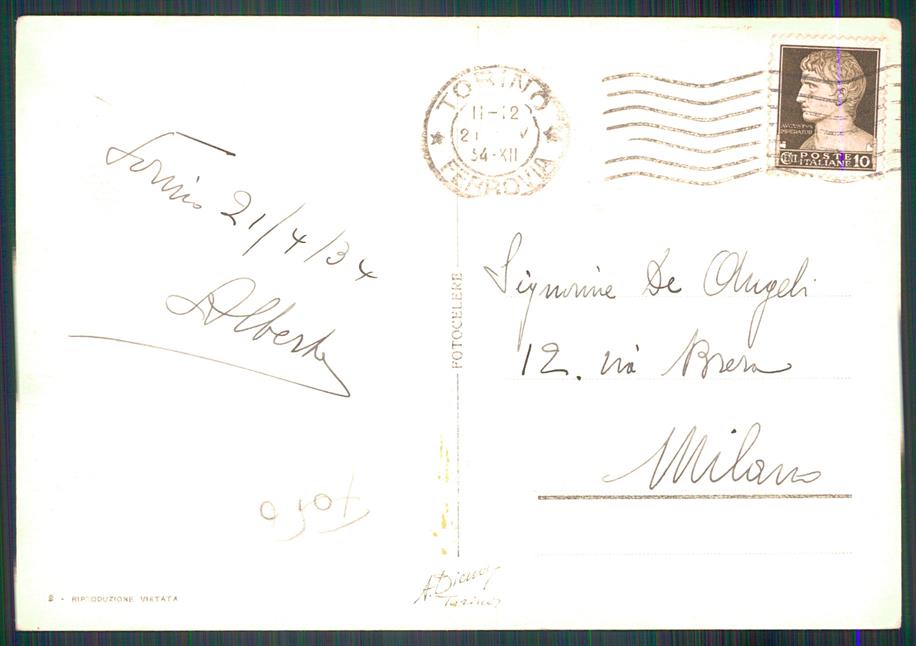 TORINO
11-12
21 V
34-XII
FERROVIA
AVGVSTVS
IMPERATOR
POSTE
ITALIANE 10
Torino 21/4/34
Alberto
Signorine De Angeli
12. via Brera
Milano
FOTOCELERE
A. Torino
S - RIPRODUZIONE VIETATA